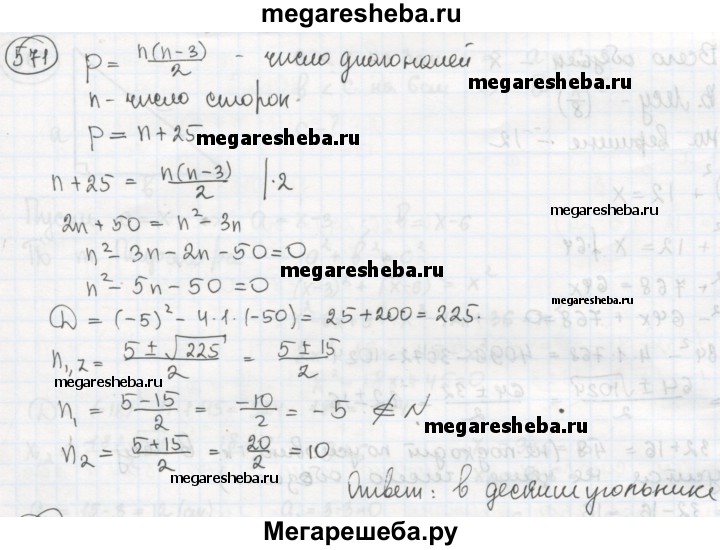 megaresheba.ru
571 p = n(n-3)/2 - число диагоналей
n - число сторон.
p = n + 25
megaresheba.ru
n + 25 = n(n-3)/2 | · 2
megaresheba.ru
2n + 50 = n² - 3n
n² - 3n - 2n - 50 = 0
megaresheba.ru
n² - 5n - 50 = 0
megaresheba.ru
D = (-5)² - 4 · 1 · (-50) = 25 + 200 = 225.
n₁,₂ = (5 ± √225)/2 = (5 ± 15)/2
megaresheba.ru
n₁ = (5-15)/2 = -10/2 = -5 ∉ N
megaresheba.ru
n₂ = (5+15)/2 = 20/2 = 10
megaresheba.ru
Ответ: в десятиугольнике
megaresheba.ru
Мегарешеба.ру